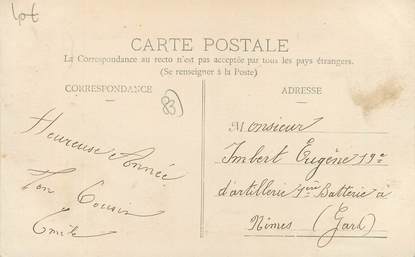 Lot
CARTE POSTALE
La Correspondance au recto n'est pas acceptée par tous les pays étrangers.
(Se renseigner à la Poste)
CORRESPONDANCE
ADRESSE
83
Heureuse Année
Ton Cousin
Emile
Monsieur
Imbert Eugène 19e
d'artillerie 4me Batterie à
Nîmes (Gard)